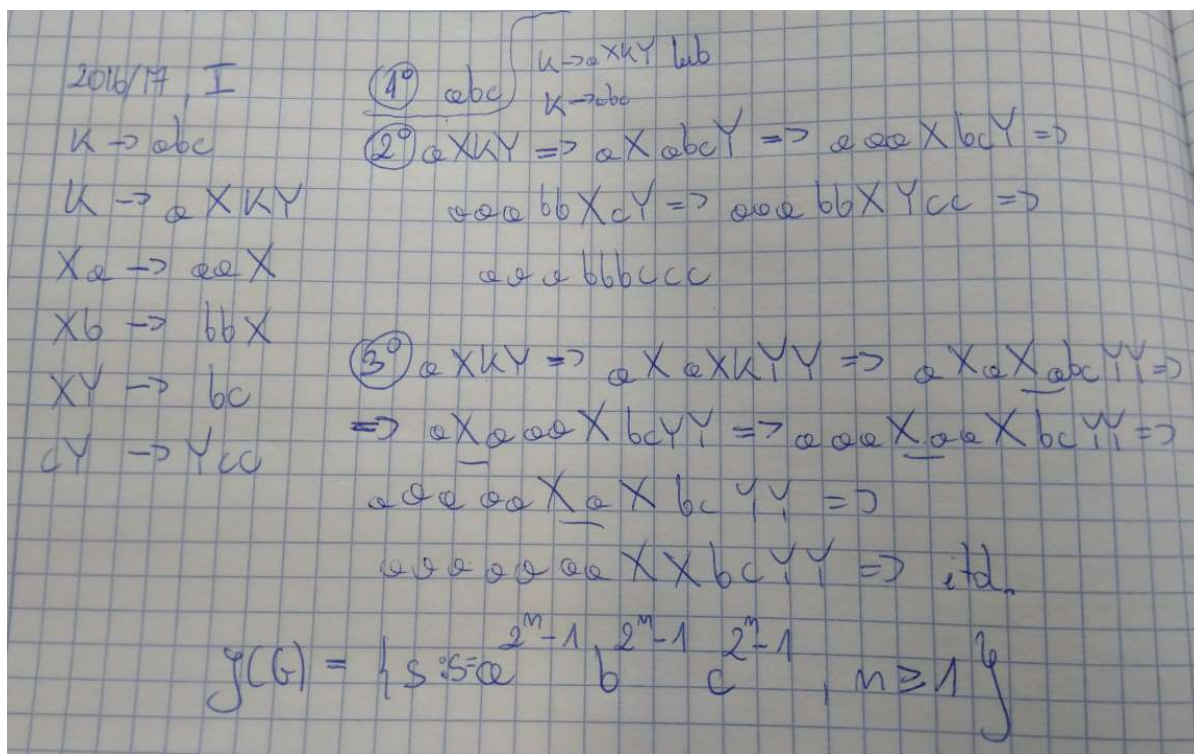 2016/17, I
K → abc
K → aXKY
Xa → aaX
Xb → bbX
XY → bc
cY → Ycc
1° abc K → aXKY lub
K → abc
2° aXKY => aXabcY => aaaXbcY =>
aaabbXcY => aaabbXYcc =>
aaabbbccc
3° aXKY => aXaXKYY => aXaXabcYY =>
=> aXaaaXbcYY => aaaXaaXbcYY =>
aaaaaXaXbcYY =>
aaaaaaaXXbcYY => itd.
L(G) = { s : s = a^{2^n-1} b^{2^n-1} c^{2^n-1}, n ≥ 1 }